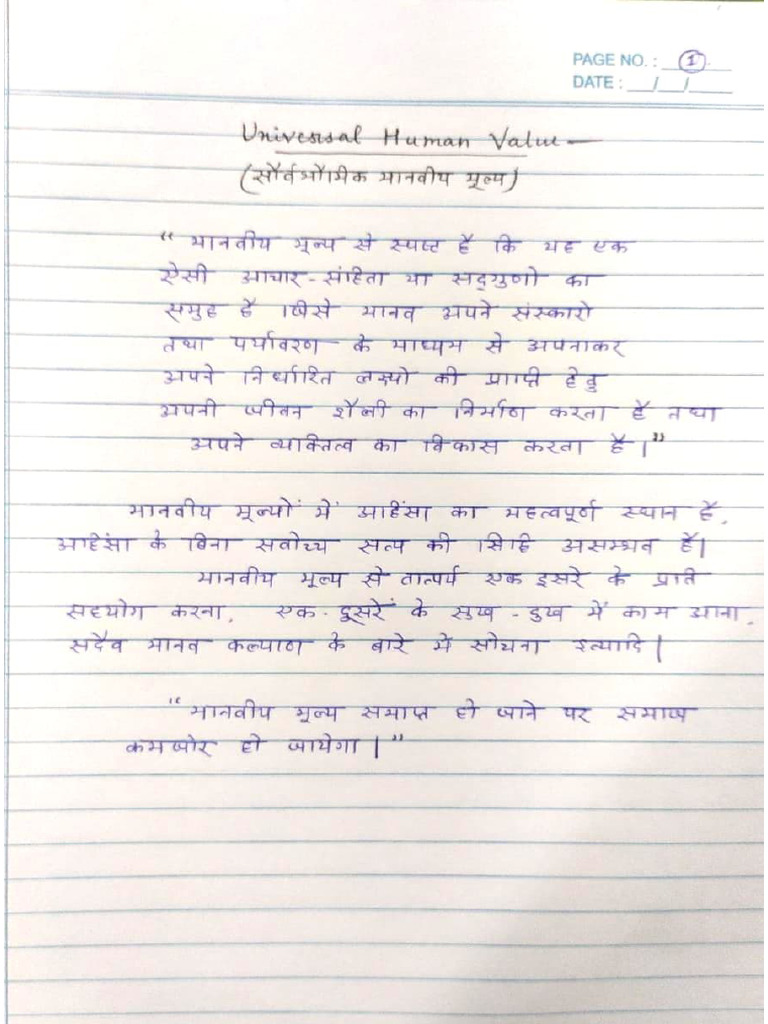 PAGE NO. : 1
DATE : __/__/____
Universal Human Value —
(सौर्वभौमिक मानवीय मूल्य)
“ मानवीय मूल्य से स्पष्ट है कि यह एक
ऐसी आचार-संहिता या सद्गुणो का
समुह है जिसे मानव अपने संस्कारो
तथा पर्यावरण के माध्यम से अपनाकर
अपने निर्धारित लक्ष्यो की प्राप्ति हेतु
अपनी जीवन शैली का निर्माण करता है तथा
अपने व्यक्तित्व का विकास करता है।”
मानवीय मूल्यों में अहिंसा का महत्वपूर्ण स्थान है,
अहिंसा के बिना सर्वोच्य सत्य की सिद्धि असम्भव है।
मानवीय मूल्य से तात्पर्य एक दुसरे के प्रति
सहयोग करना, एक-दूसरें के सुख-दुख में काम आना,
सदैव मानव कल्याण के बारे में सोचना इत्यादि।
“मानवीय मूल्य समाप्त हो जाने पर समाज
कमजोर हो जायेगा।”